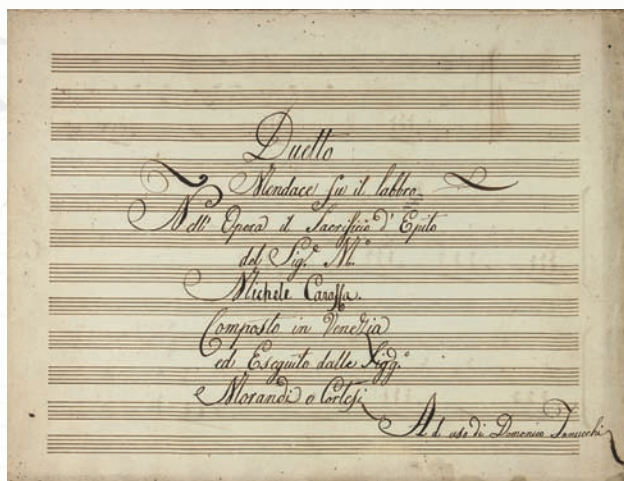 Duetto
Mendace fu il labbro
Nell' Opera il Sacrifizio d' Epito
del Sig.e M.o
Michele Caraffa.
Composto in Venezia
ed Eseguito dalle Sigg.e
Morandi e Cortesi
Ad uso di Domenico